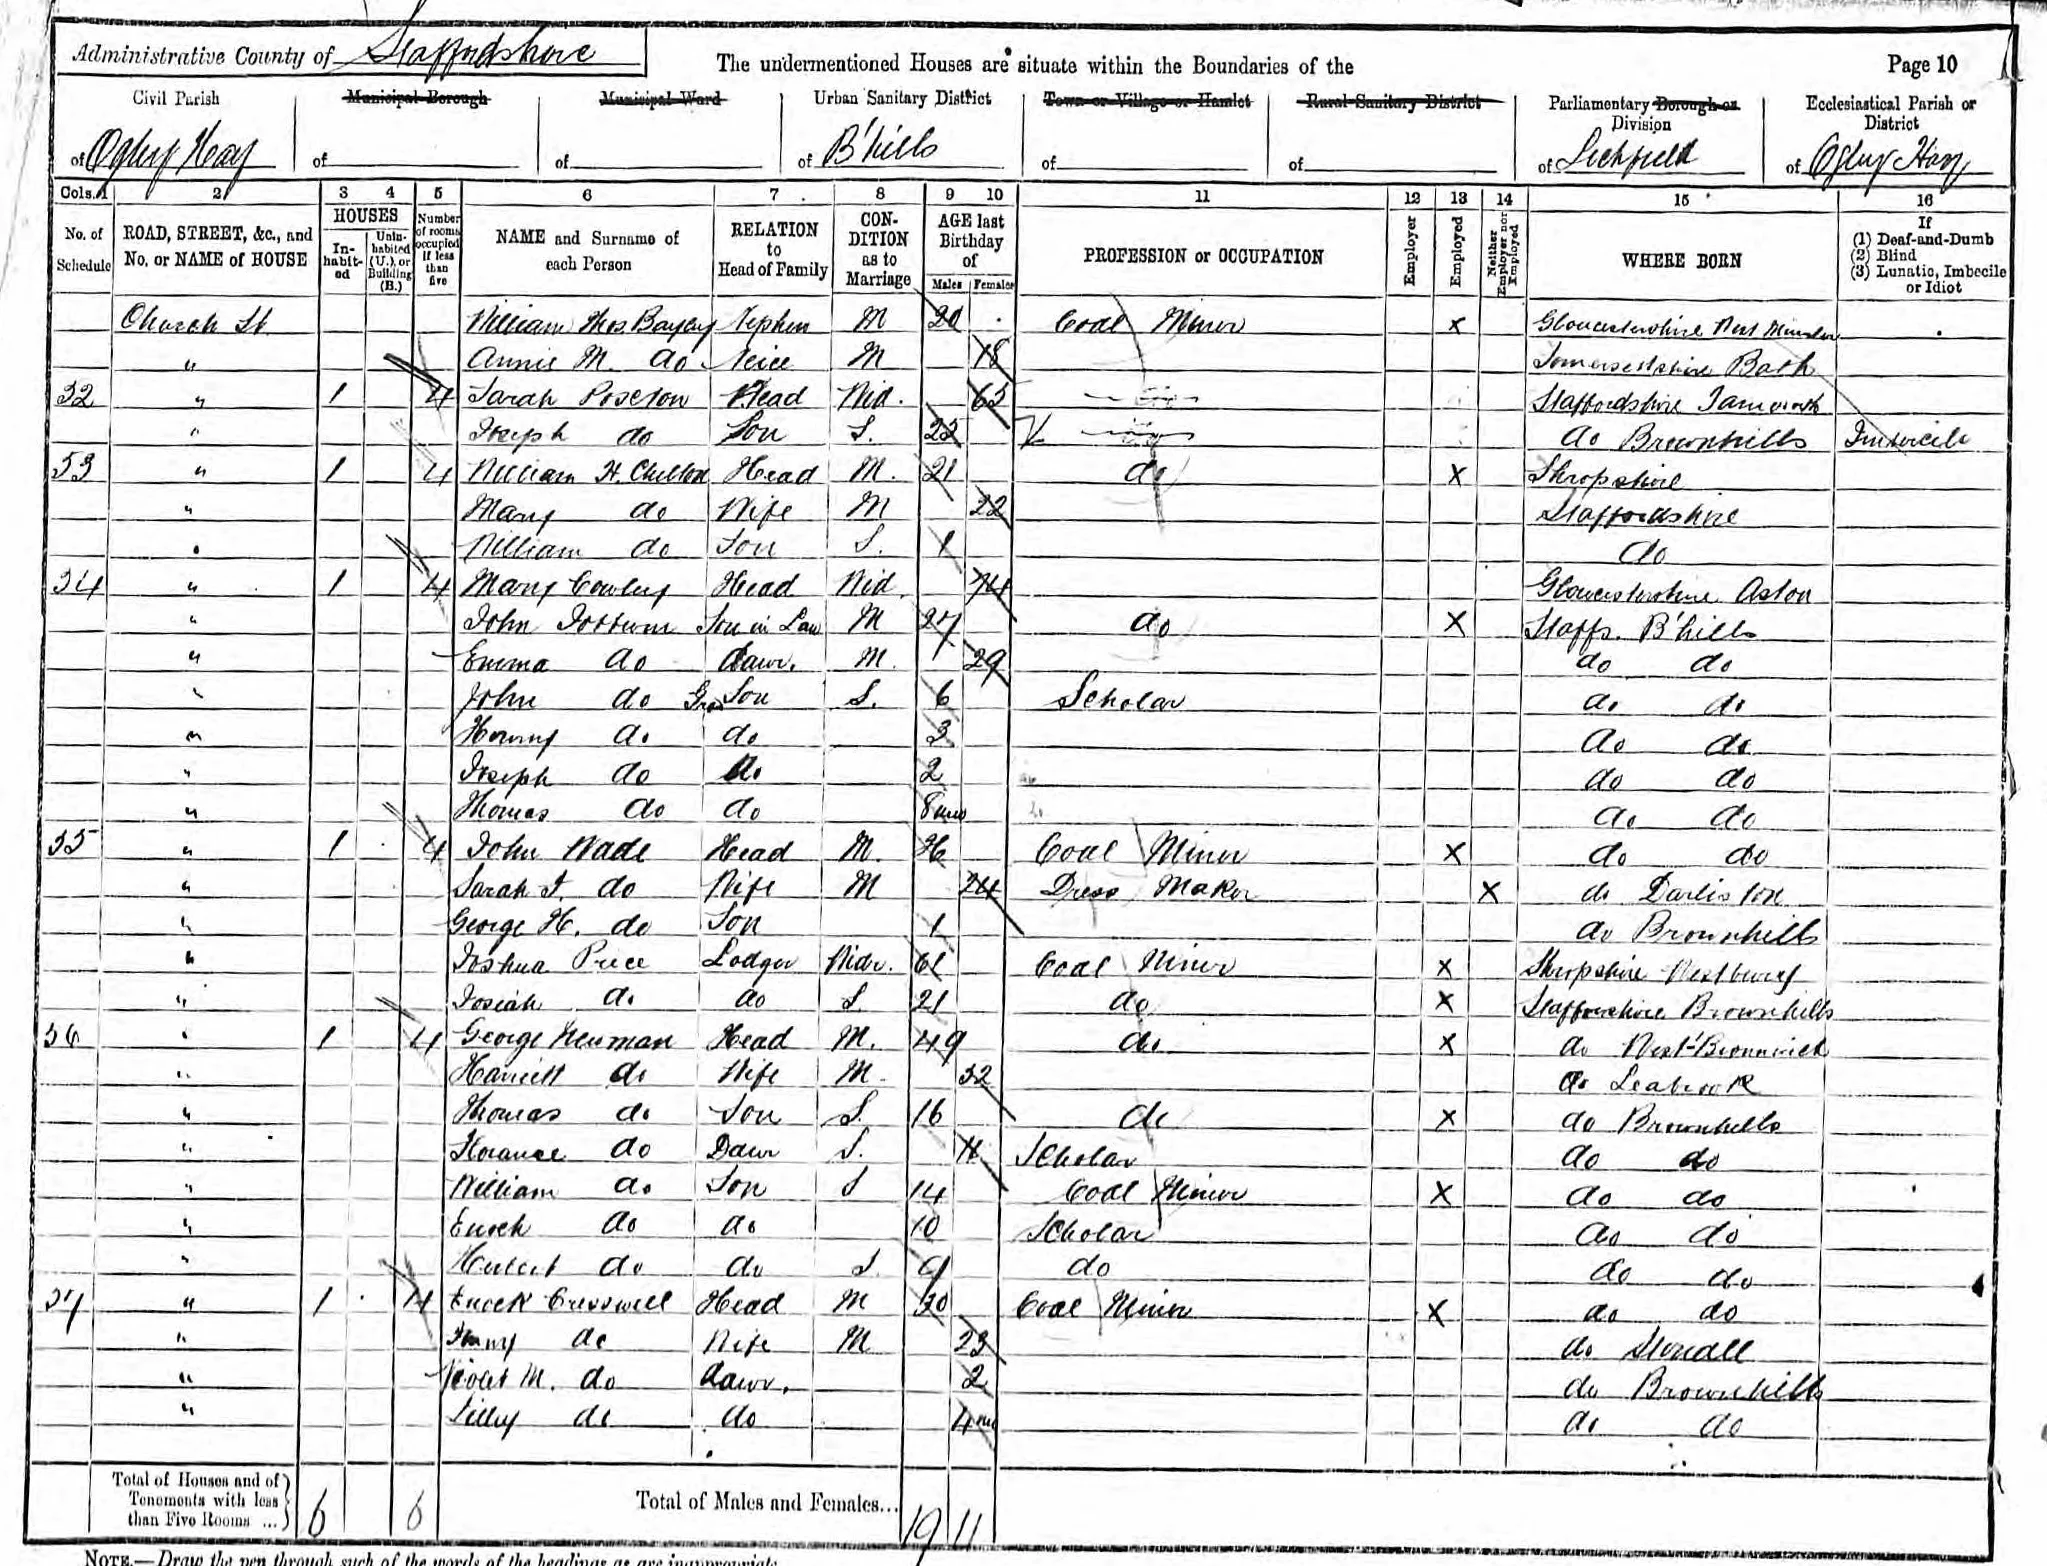 Administrative County of Staffordshire
The undermentioned Houses are situate within the Boundaries of the
Page 10
Civil Parish
Municipal Borough
Municipal Ward
Urban Sanitary District
Town or Village or Hamlet
Rural Sanitary District
Parliamentary Borough or Division
Ecclesiastical Parish or District
of Ogley Hay
of
of
of B'hills
of
of
of Lichfield
of Ogley Hay
Cols. 1 2 3 4 5 6 7 8 9 10 11 12 13 14 15 16
No. of Schedule
ROAD, STREET, &c., and No. or NAME of HOUSE
HOUSES
In-habit-ed
Unin-habited (U.), or Building (B.)
Number of rooms occupied if less than five
NAME and Surname of each Person
RELATION to Head of Family
CON-DITION as to Marriage
AGE last Birthday of
Males Females
PROFESSION or OCCUPATION
Employer
Employed
Neither Employer nor Employed
WHERE BORN
If
(1) Deaf-and-Dumb
(2) Blind
(3) Lunatic, Imbecile or Idiot
Church St. William Thos Bayley Nephew M 20 Coal Miner x Gloucestershire
" Annie M. do Neice M 18 Somersetshire Bath
32 " 1 4 Sarah Head Wid. 65 Staffordshire Tamworth
" Joseph do Son S. 23 do Brownhills Imbecile
33 " 1 4 William H. Chilton Head M. 21 do x Shropshire
" Mary do Wife M 22 Staffordshire
" William do Son S. 1 do
34 " 1 4 Mary Cowley Head Wid. 74 Gloucestershire Aston
" John Son in Law M 27 do x Staffs. B'hills
" Emma do dawr. M. 29 do do
" John do Gran Son S. 6 Scholar do do
" Henry do do 3 do do
" Joseph do do 2 do do
" Thomas do do 8 mo do do
35 " 1 4 John Wade Head M. 26 Coal Miner x do do
" Sarah J. do Wife M 24 Dress Maker x do Darliston
" George H. do Son 1 do Brownhills
" Joshua Price Lodger Widr. 61 Coal Miner x Shropshire Westbury
" Josiah do do S. 21 do x Staffordshire Brownhills
36 " 1 4 George Newman Head M. 49 do x do West-Bromwich
" Harriett do Wife M. 32 do Leabrook
" Thomas do Son S. 16 do x do Brownhills
" Florance do Dawr S. 11 Scholar do do
" William do Son S 14 Coal Miner x do do
" Enoch do do 10 Scholar do do
" Herbert do do S. 9 do do do
37 " 1 4 Enock Cresswell Head M 30 Coal Miner x do do
" Fanny do Wife M 23 do Stonall
" Violet M. do dawr. 2 do Brownhills
" Lilly do do 4 mo do do
Total of Houses and of Tenements with less than Five Rooms ... 6 6
Total of Males and Females... 19 11
NOTE.—Draw the pen through such of the words of the headings as are inappropriate.